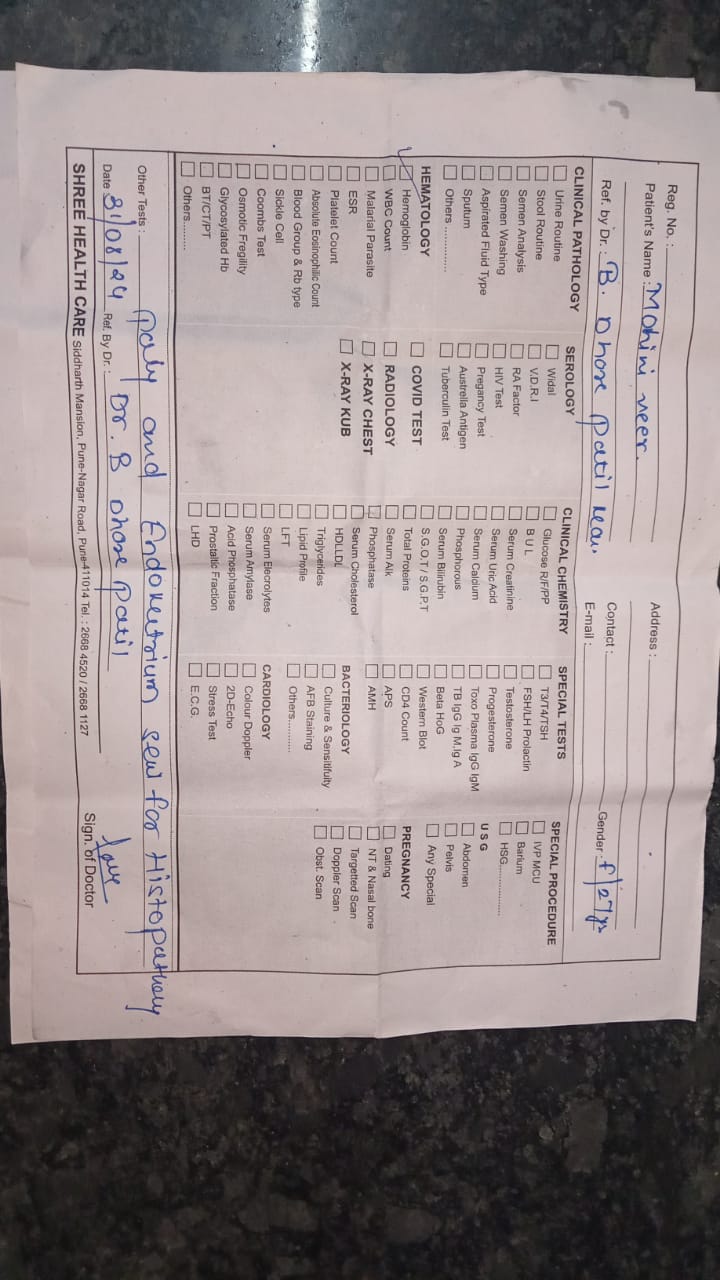 Reg. No. :
Patient's Name : Mohini veer. Address :
Contact : Gender : f/27yr
Ref. by Dr. : B. Dhose Patil E-mail :
CLINICAL PATHOLOGY
Urine Routine
Stool Routine
Semen Analysis
Semen Washing
Aspirated Fluid Type
Sputum
Others .............
HEMATOLOGY
Hemoglobin
WBC Count
Malarial Parasite
ESR
Platelet Count
Absolute Eosinophilic Count
Blood Group & Rb type
Sickle Cell
Coombs Test
Osmotic Fregility
Glycosylated Hb
BT/CT/PT
Others.........
SEROLOGY
Widal
V.D.R.I
RA Factor
HIV Test
Pregancy Test
Austrella Antigen
Tuberculin Test
COVID TEST
RADIOLOGY
X-RAY CHEST
X-RAY KUB
CLINICAL CHEMISTRY
Glucose R/F/PP
B U L
Serum Creatinine
Serum Uric Acid
Serum Calcium
Phosphorous
Serum Bilirubin
S.G.O.T / S.G.P.T
Total Proteins
Serum Alk
Phosphatase
Serum Cholesterol
HDLLDL
Triglycerides
Lipid Profile
LFT
Serum Elecrolytes
Serum Amylase
Acid Phosphatase
Prostaltic Fraction
LHD
SPECIAL TESTS
T3/T4/TSH
FSH/LH Prolactin
Testosterone
Progesterone
Toxo Plasma IgG IgM
TB IgG Ig M.Ig A
Beta HoG
Western Blot
CD4 Count
APS
AMH
BACTERIOLOGY
Culture & Sensitifuity
AFB Staining
Others..........
CARDIOLOGY
Colour Doppler
2D-Echo
Stress Test
E.C.G.
SPECIAL PROCEDURE
IVP MCU
Barium
HSG................
U S G
Abdomen
Pelvis
Any Special
PREGNANCY
Dating
NT & Nasal bone
Targetted Scan
Doppler Scan
Obst. Scan
Other Tests : and Endometrium for Histopathory
Date 31/08/24 Ref. By Dr. : Dr. B Dhose Patil Sign. of Doctor
SHREE HEALTH CARE Siddharth Mansion, Pune-Nagar Road, Pune-411014 Tel. : 2668 4520 / 2668 1127